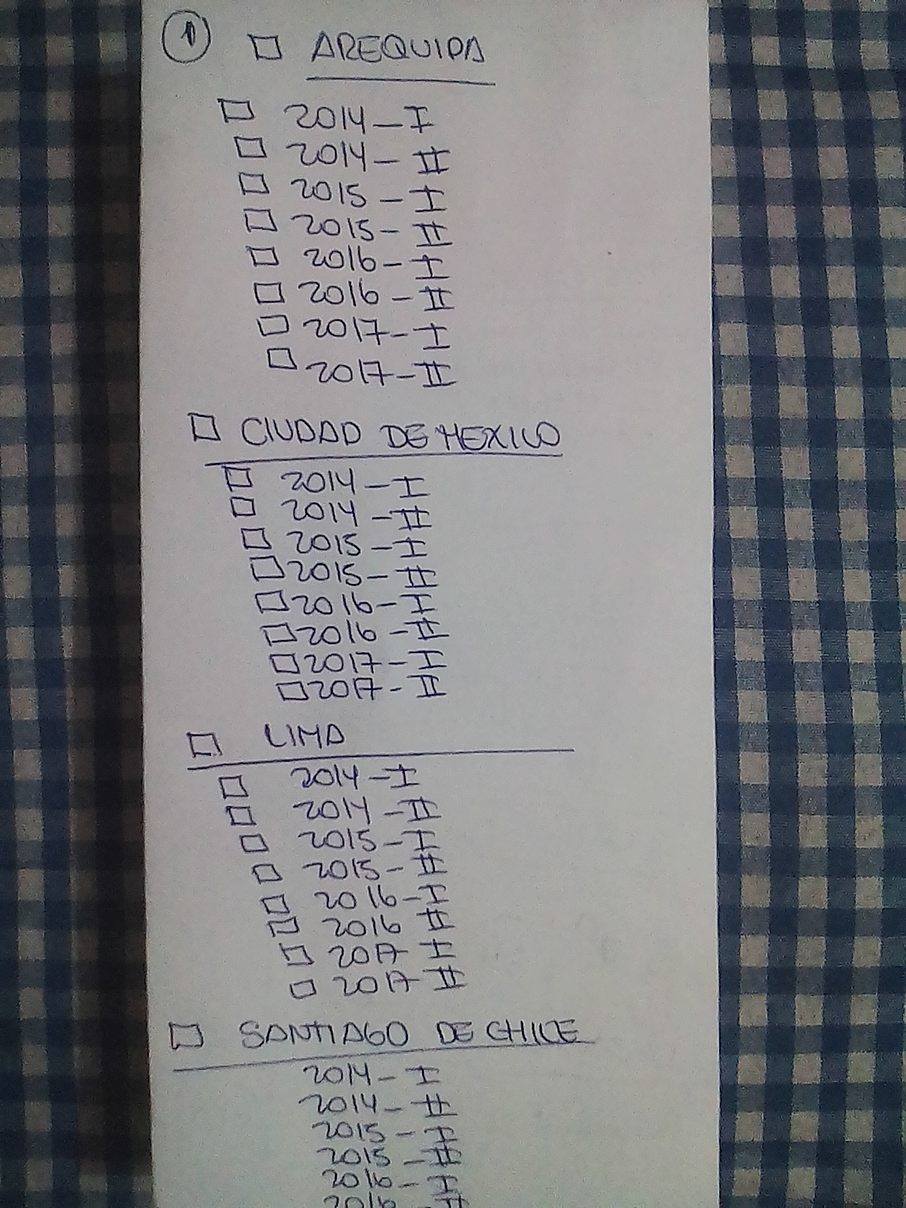 1
□ AREQUIPA
□ 2014-I
□ 2014-II
□ 2015-I
□ 2015-II
□ 2016-I
□ 2016-II
□ 2017-I
□ 2017-II
□ CIUDAD DE MEXICO
□ 2014-I
□ 2014-II
□ 2015-I
□ 2015-II
□ 2016-I
□ 2016-II
□ 2017-I
□ 2017-II
□ LIMA
□ 2014-I
□ 2014-II
□ 2015-I
□ 2015-II
□ 2016-I
□ 2016 II
□ 2017 I
□ 2017 II
□ SANTIAGO DE CHILE
2014-I
2014-II
2015-I
2015-II
2016-I
2016-II